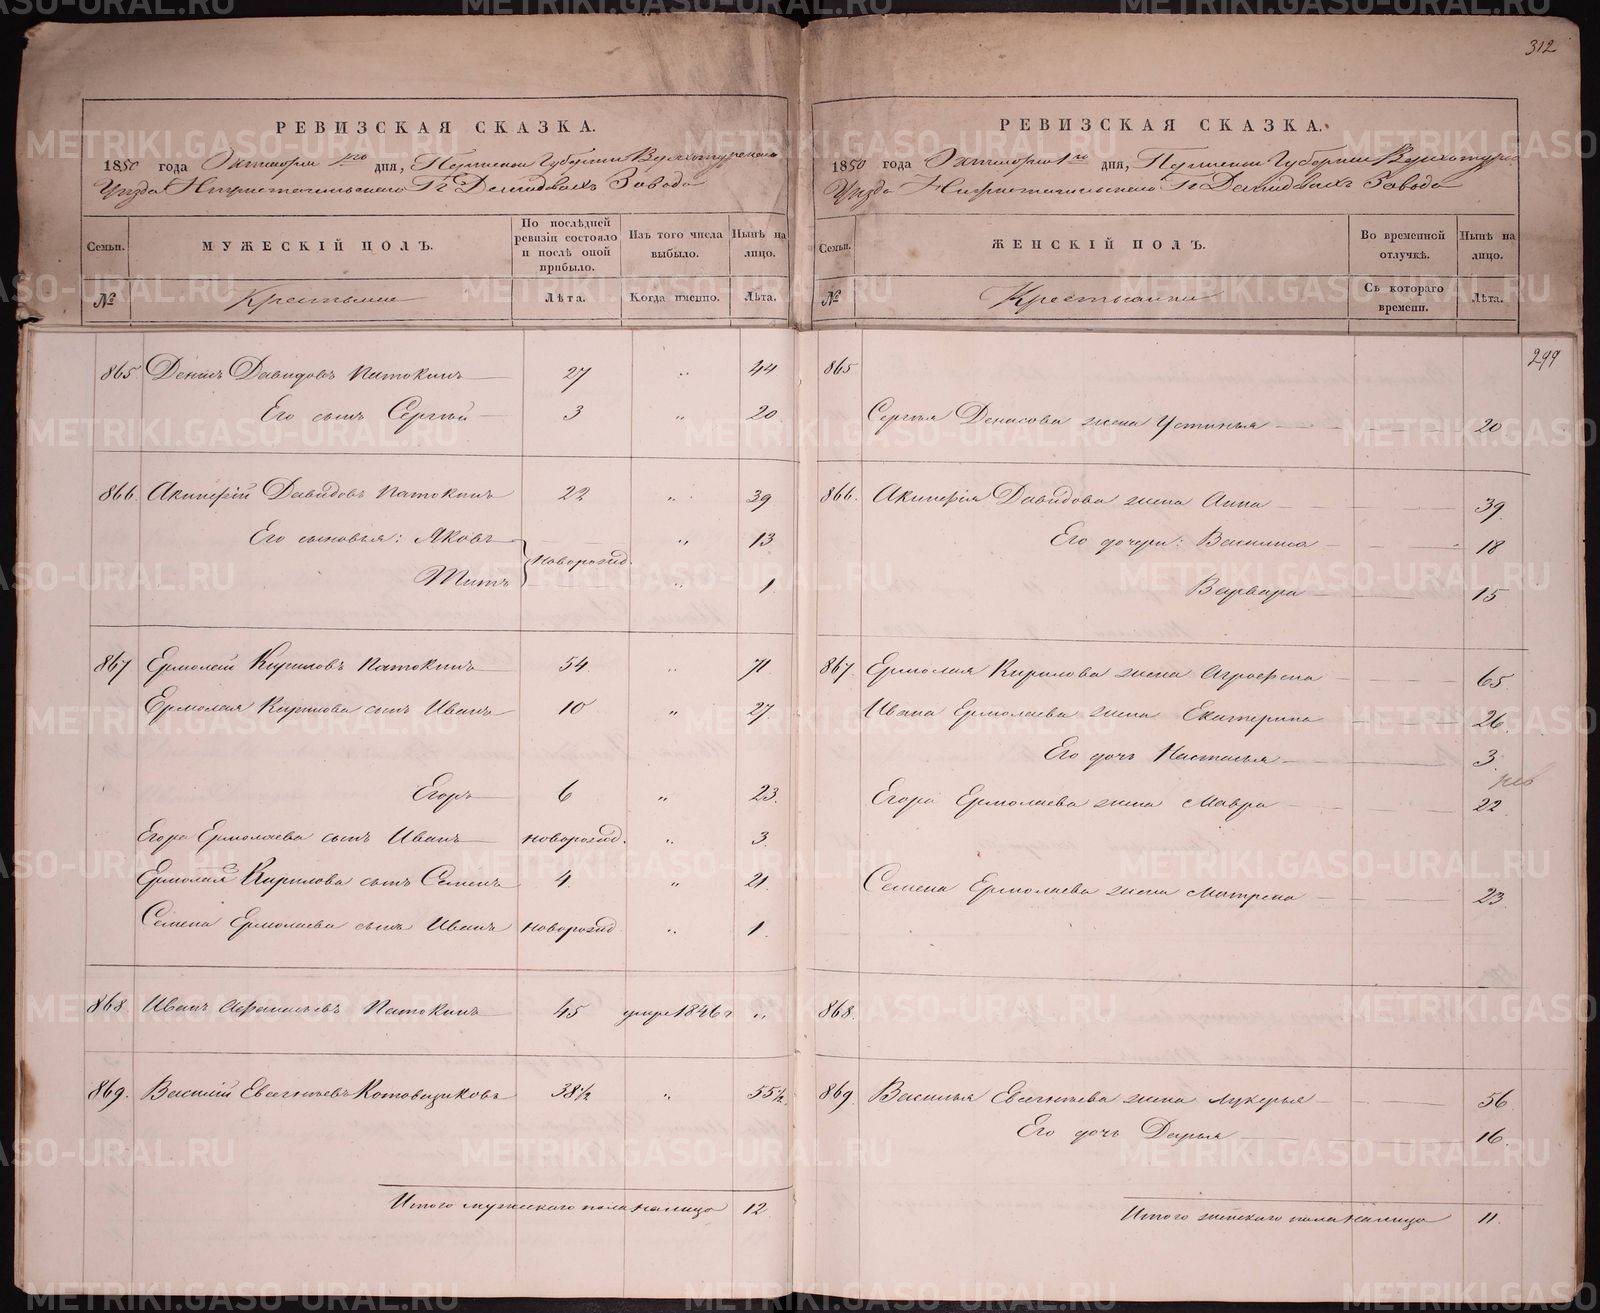 312
РЕВИЗСКАЯ СКАЗКА.
1850 года Октября 1го дня, Пермской Губернии Верхотурскаго
Уезда Нижнетагильскаго Гг Демидовыхъ Завода
Семьи. МУЖЕСКІЙ ПОЛЪ. По послѣдней ревизіи состояло и послѣ оной прибыло. Изъ того числа выбыло. Нынѣ на лицо.
№ Крестьяне Лѣта. Когда именно. Лѣта.
865 Денисъ Давидовъ Патокинъ 27 „ 44
Его сынъ Сергѣй 3 „ 20
866. Акинфій Давидовъ Патокинъ 22 „ 39
Его сыновья: Яковъ новорожд. „ 13
Титъ „ 1
867 Ермолай Кириловъ Патокинъ 54 „ 71
Ермолая Кирилова сынъ Иванъ 10 „ 27
Егоръ 6 „ 23.
Егора Ермолаева сынъ Иванъ новорожд. „ 3.
Ермолая Кирилова сынъ Семенъ 4. „ 21
Семена Ермолаева сынъ Иванъ новорожд „ 1.
868. Иванъ Афанасьевъ Патокинъ 45 умре 1846 г „
869. Василий Евсигнѣевъ Котовщиковъ 38 1/2 „ 55 1/2
Итого мужескаго пола налицо 12
РЕВИЗСКАЯ СКАЗКА.
1850 года Октября 1го дня, Пермской Губернии Верхотурс
Уезда Нижнетагильскаго Гг Демидовыхъ Завода
Семьи. ЖЕНСКІЙ ПОЛЪ. Во временной отлучкѣ. Нынѣ на лицо.
№ Крестьянки Съ котораго времени. Лѣта.
299
865
Сергѣя Денисова жена Устинья 20
866. Акинфія Давидова жена Анна 39.
Его дочери: Василиса 18
Варвара 15.
867. Ермолая Кирилова жена Агрофена 65.
Ивана Ермолаева жена Екатерина 26.
Его дочь Настасья 3.
Егора Ермолаева жена Мавра 22
Семена Ермолаева жена Матрена 23.
868.
869 Василья Евсигнѣева жена Лукерья 56
Его дочь Дарья 16.
Итого женскаго пола налицо 11.
METRIKI.GASO-URAL.RU